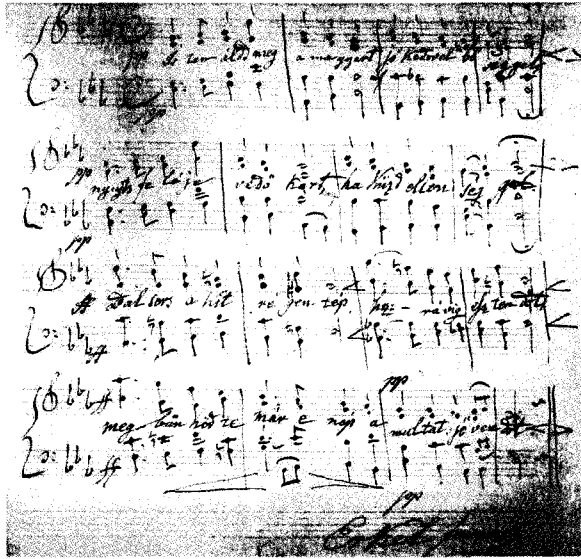 pp Isten áldd meg a magyart jó kedvvel bő
pp
pp nyujts feléje védő kart, ha küzd ellen
pp
ff Bal sors a kit régen tép hoz - rá vig esztendőt
ff
ff pp
meg bűn hődte már e nép a multat jövendőt
ff
pp
Erkel